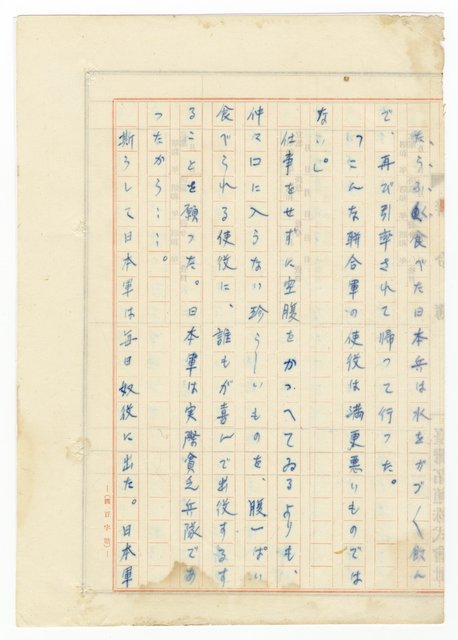 たらふく食べた日本兵は水をがぶ〳〵飲ん
で、再び引率されて帰つて行つた。
「こんな聯合軍の使役は満更悪いものでは
ない」。
仕事をせずに空腹をかゝへてゐるよりも、
仲々口に入らない珍らしいものを、腹一ぱい
食べられる使役に、誰もが喜んで出役するす
ることを願つた。日本軍は実際貧乏兵隊であ
つたから……。
斯うして日本軍は毎日奴役に出た。日本軍